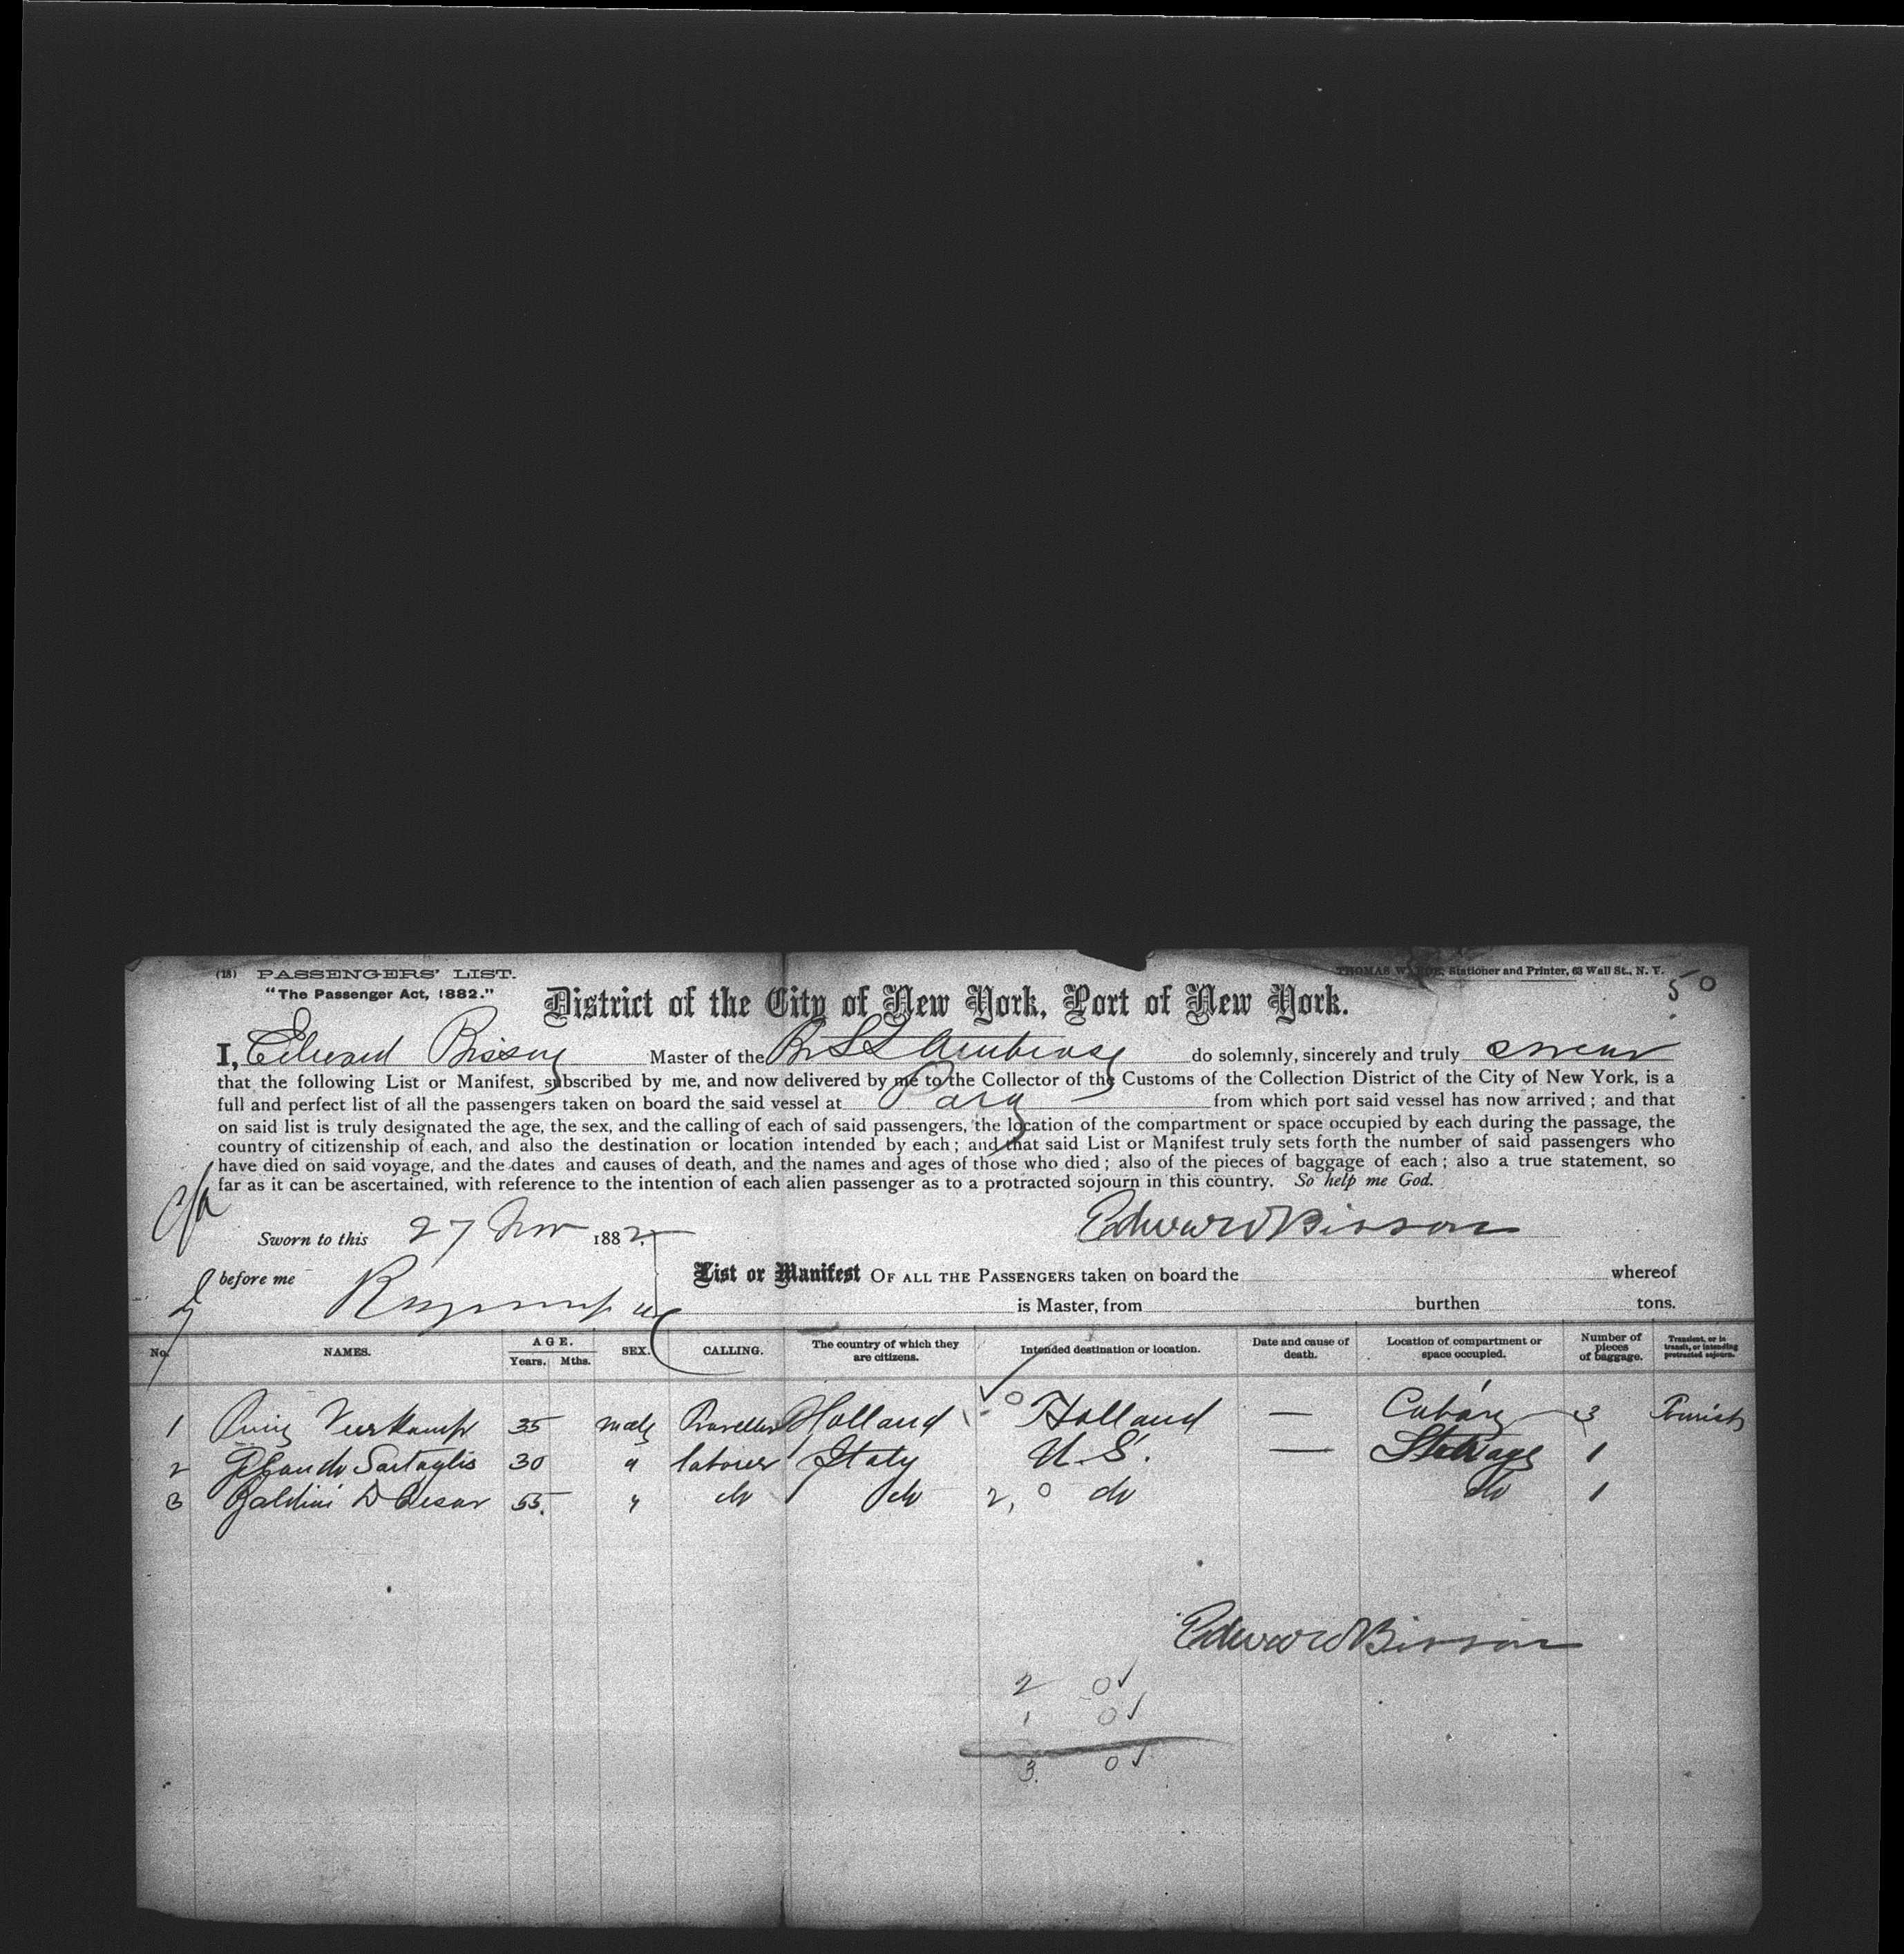 (18) PASSENGERS' LIST.
THOMAS Stationer and Printer, 63 Wall St., N. Y.
"The Passenger Act, 1882."
50
District of the City of New York, Port of New York.
I, Edward Bisson Master of the Br SS Ambrose do solemnly, sincerely and truly swear
that the following List or Manifest, subscribed by me, and now delivered by me to the Collector of the Customs of the Collection District of the City of New York, is a
full and perfect list of all the passengers taken on board the said vessel at Para from which port said vessel has now arrived; and that
on said list is truly designated the age, the sex, and the calling of each of said passengers, the location of the compartment or space occupied by each during the passage, the
country of citizenship of each, and also the destination or location intended by each; and that said List or Manifest truly sets forth the number of said passengers who
have died on said voyage, and the dates and causes of death, and the names and ages of those who died; also of the pieces of baggage of each; also a true statement, so
far as it can be ascertained, with reference to the intention of each alien passenger as to a protracted sojourn in this country. So help me God.
Sworn to this 27 Nov 188
Edward Bisson
before me
List or Manifest OF ALL THE PASSENGERS taken on board the whereof
is Master, from burthen tons.
No. NAMES. AGE. Years. Mths. SEX. CALLING. The country of which they are citizens. Intended destination or location. Date and cause of death. Location of compartment or space occupied. Number of pieces of baggage. Transient, or in transit, or intending protracted sojourn.
1 Veerkamp 35 male Traveller Holland 0 Holland — 3 Tourist
2 30 " laborer Italy U.S. — Steerage 1
3 Baldini D Cesar 55. " do do 2, 0 do do 1
Edward Bisson
2 0✓
1 0✓
3. 0✓